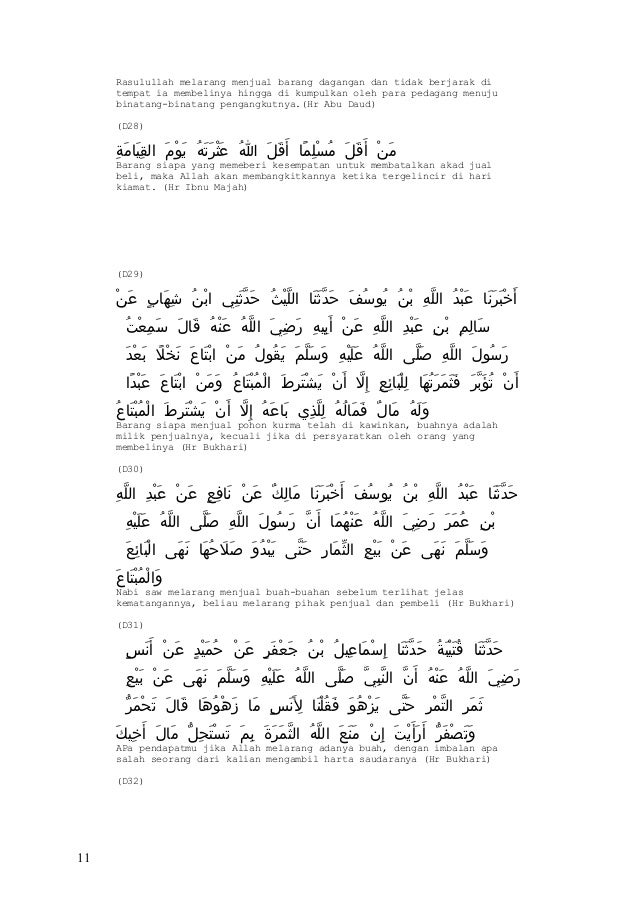 Rasulullah melarang menjual barang dagangan dan tidak berjarak di
tempat ia membelinya hingga di kumpulkan oleh para pedagang menuju
binatang-binatang pengangkutnya.(Hr Abu Daud)
(D28)
مَنْ أَقَلَ مُسْلِمًا أَقَلَ اللهُ عَثْرَتَهُ يَوْمَ القِيَامَةِ
Barang siapa yang memeberi kesempatan untuk membatalkan akad jual
beli, maka Allah akan membangkitkannya ketika tergelincir di hari
kiamat. (Hr Ibnu Majah)
(D29)
أَخْبَرَنَا عَبْدُ اللَّهِ بْنُ يُوسُفَ حَدَّثَنَا اللَّيْثُ حَدَّثَنِى ابْنُ شِهَابٍ عَنْ
سَالِمِ بْنِ عَبْدِ اللَّهِ عَنْ أَبِيهِ رَضِيَ اللَّهُ عَنْهُ قَالَ سَمِعْتُ
رَسُولَ اللَّهِ صَلَّى اللَّهُ عَلَيْهِ وَسَلَّمَ يَقُولُ مَنْ ابْتَاعَ نَخْلًا بَعْدَ
أَنْ تُؤَبَّرَ فَثَمَرَتُهَا لِلْبَائِعِ إِلَّا أَنْ يَشْتَرِطَ الْمُبْتَاعُ وَمَنْ ابْتَاعَ عَبْدًا
وَلَهُ مَالٌ فَمَالُهُ لِلَّذِي بَاعَهُ إِلَّا أَنْ يَشْتَرِطَ الْمُبْتَاعُ
Barang siapa menjual pohon kurma telah di kawinkan, buahnya adalah
milik penjualnya, kecuali jika di persyaratkan oleh orang yang
membelinya (Hr Bukhari)
(D30)
حَدَّثَنَا عَبْدُ اللَّهِ بْنُ يُوسُفَ أَخْبَرَنَا مَالِكٌ عَنْ نَافِعٍ عَنْ عَبْدِ اللَّهِ
بْنِ عُمَرَ رَضِيَ اللَّهُ عَنْهُمَا أَنَّ رَسُولَ اللَّهِ صَلَّى اللَّهُ عَلَيْهِ
وَسَلَّمَ نَهَى عَنْ بَيْعِ الثِّمَارِ حَتَّى يَبْدُوَ صَلَاحُهَا نَهَى الْبَائِعَ
وَالْمُبْتَاعَ
Nabi saw melarang menjual buah-buahan sebelum terlihat jelas
kematangannya, beliau melarang pihak penjual dan pembeli (Hr Bukhari)
(D31)
حَدَّثَنَا قُتَيْبَةُ حَدَّثَنَا إِسْمَاعِيلُ بْنُ جَعْفَرٍ عَنْ حُمَيْدٍ عَنْ أَنَسٍ
رَضِيَ اللَّهُ عَنْهُ أَنَّ النَّبِيَّ صَلَّى اللَّهُ عَلَيْهِ وَسَلَّمَ نَهَى عَنْ بَيْعِ
ثَمَرِ التَّمْرِ حَتَّى يَزْهُوَ فَقُلْنَا لِأَنَسٍ مَا زَهْوُهَا قَالَ تَحْمَرُّ
وَتَصْفَرُّ أَرَأَيْتَ إِنْ مَنَعَ اللَّهُ الثَّمَرَةَ بِمَ تَسْتَحِلُّ مَالَ أَخِيكَ
APa pendapatmu jika Allah melarang adanya buah, dengan imbalan apa
salah seorang dari kalian mengambil harta saudaranya (Hr Bukhari)
(D32)
11